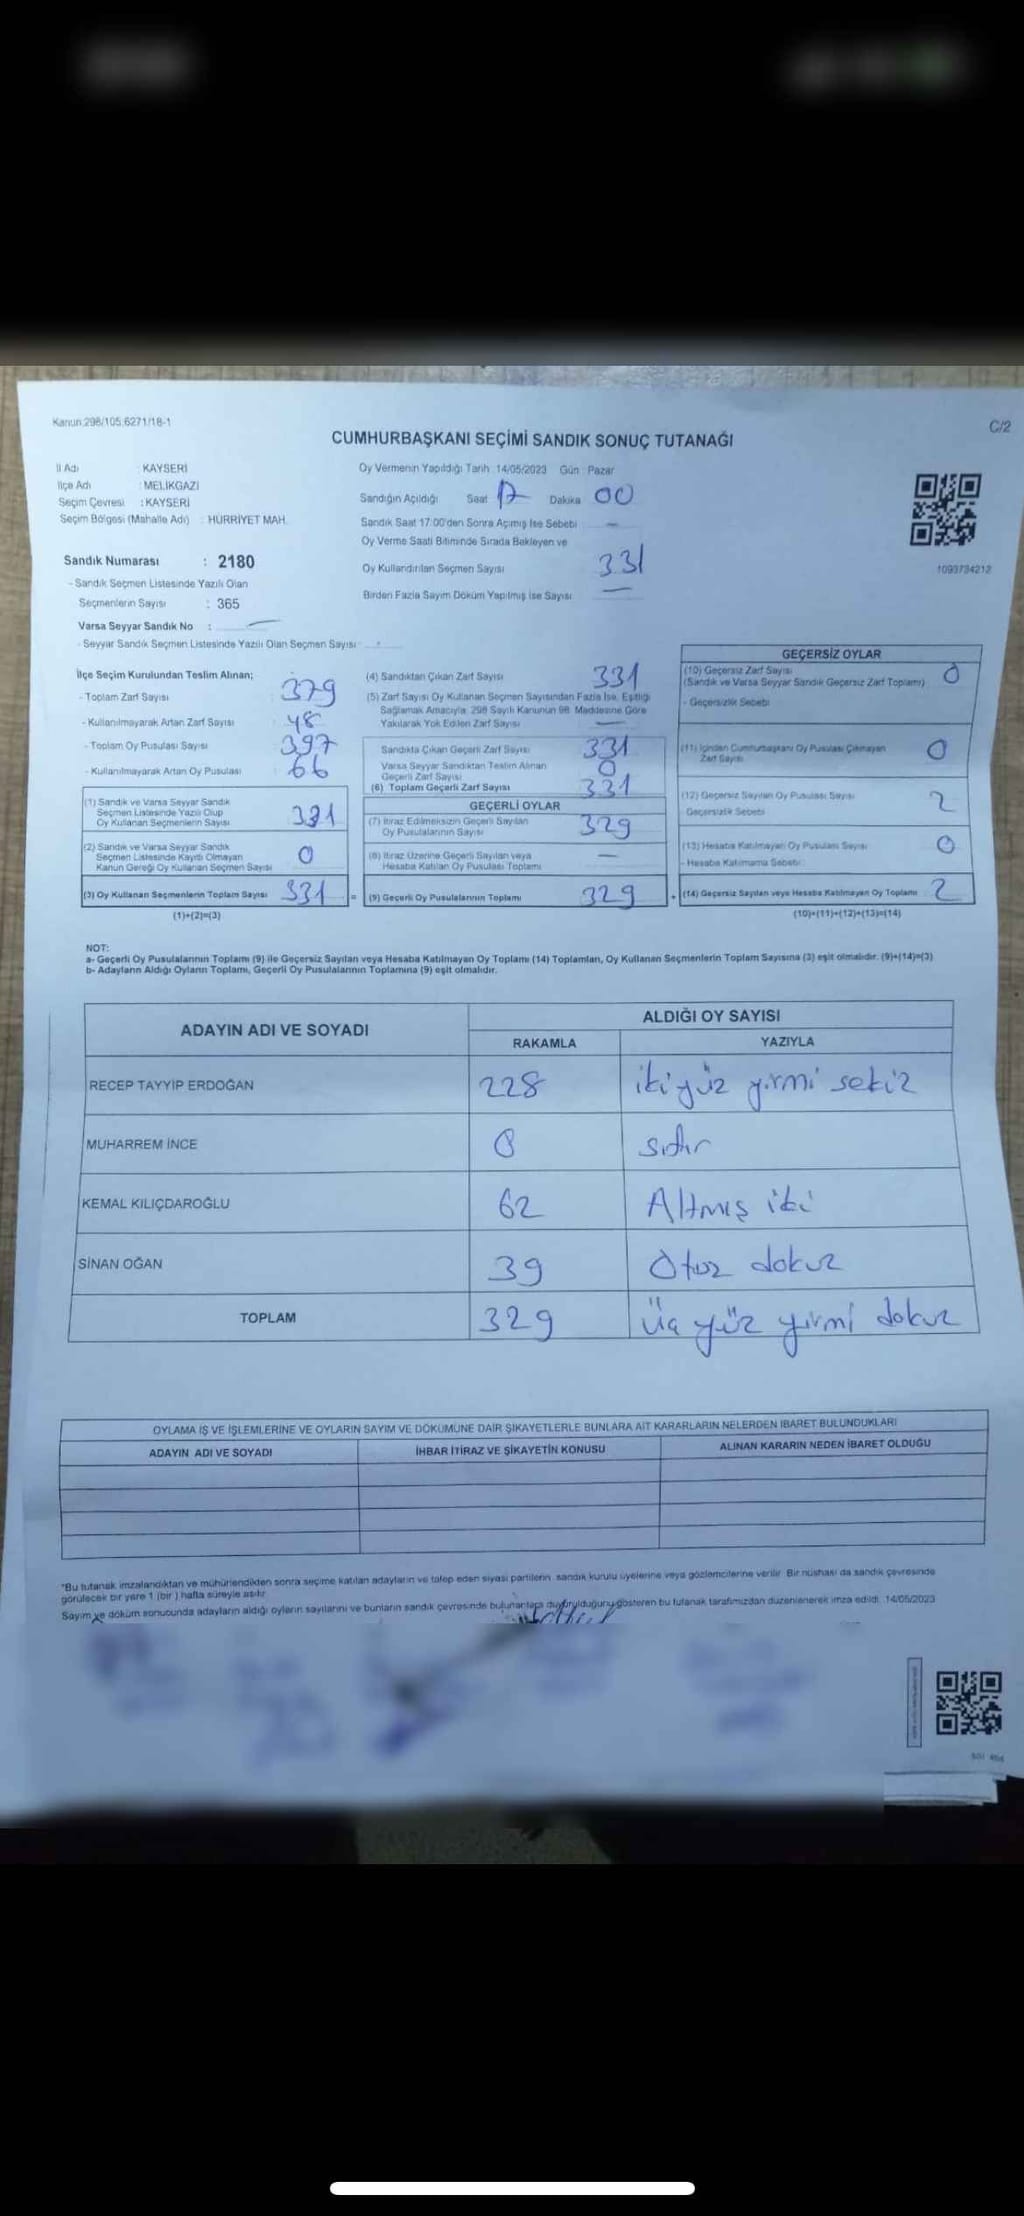 Kanun:298/105,6271/18-1
C/2
CUMHURBAŞKANI SEÇİMİ SANDIK SONUÇ TUTANAĞI
İl Adı : KAYSERİ
İlçe Adı : MELİKGAZİ
Seçim Çevresi : KAYSERİ
Seçim Bölgesi (Mahalle Adı) : HÜRRİYET MAH.
Sandık Numarası : 2180
- Sandık Seçmen Listesinde Yazılı Olan
Seçmenlerin Sayısı : 365
Varsa Seyyar Sandık No :
- Seyyar Sandık Seçmen Listesinde Yazılı Olan Seçmen Sayısı :
Oy Vermenin Yapıldığı Tarih : 14/05/2023 Gün : Pazar
Sandığın Açıldığı Saat 17 Dakika 00
Sandık Saat 17:00'den Sonra Açımış İse Sebebi —
Oy Verme Saati Bitiminde Sırada Bekleyen ve
Oy Kullandırılan Seçmen Sayısı 331
Birden Fazla Sayım Döküm Yapılmış ise Sayısı —
1093734212
İlçe Seçim Kurulundan Teslim Alınan;
- Toplam Zarf Sayısı : 379
- Kullanılmayarak Artan Zarf Sayısı : 48
- Toplam Oy Pusulası Sayısı : 397
- Kullanılmayarak Artan Oy Pusulası : 66
(1) Sandık ve Varsa Seyyar Sandık
Seçmen Listesinde Yazılı Olup
Oy Kullanan Seçmenlerin Sayısı 331
(2) Sandık ve Varsa Seyyar Sandık
Seçmen Listesinde Kaydı Olmayan
Kanun Gereği Oy Kullanan Seçmen Sayısı 0
(3) Oy Kullanan Seçmenlerin Toplam Sayısı 331 =
(1)+(2)=(3)
(4) Sandıktan Çıkan Zarf Sayısı 331
(5) Zarf Sayısı Oy Kullanan Seçmen Sayısından Fazla İse, Eşitliği
Sağlamak Amacıyla, 298 Sayılı Kanunun 98. Maddesine Göre
Yakılarak Yok Edilen Zarf Sayısı —
Sandıkta Çıkan Geçerli Zarf Sayısı 331
Varsa Seyyar Sandıktan Teslim Alınan
Geçerli Zarf Sayısı 0
(6) Toplam Geçerli Zarf Sayısı 331
GEÇERLİ OYLAR
(7) İtiraz Edilmeksizin Geçerli Sayılan
Oy Pusulalarının Sayısı 329
(8) İtiraz Üzerine Geçerli Sayılan veya
Hesaba Katılan Oy Pusulası Toplamı —
(9) Geçerli Oy Pusulalarının Toplamı 329 +
GEÇERSİZ OYLAR
(10) Geçersiz Zarf Sayısı 0
(Sandık ve Varsa Seyyar Sandık Geçersiz Zarf Toplamı)
- Geçersizlik Sebebi
(11) İçinden Cumhurbaşkanı Oy Pusulası Çıkmayan
Zarf Sayısı 0
(12) Geçersiz Sayılan Oy Pusulası Sayısı 2
Geçersizlik Sebebi
(13) Hesaba Katılmayan Oy Pusulası Sayısı 0
- Hesaba Katılmama Sebebi
(14) Geçersiz Sayılan veya Hesaba Katılmayan Oy Toplamı 2
(10)+(11)+(12)+(13)=(14)
NOT:
a- Geçerli Oy Pusulalarının Toplamı (9) ile Geçersiz Sayılan veya Hesaba Katılmayan Oy Toplamı (14) Toplamları, Oy Kullanan Seçmenlerin Toplam Sayısına (3) eşit olmalıdır. (9)+(14)=(3)
b- Adayların Aldığı Oyların Toplamı, Geçerli Oy Pusulalarının Toplamına (9) eşit olmalıdır.
ADAYIN ADI VE SOYADI
ALDIĞI OY SAYISI
RAKAMLA
YAZIYLA
RECEP TAYYİP ERDOĞAN 228 ikiyüz yirmi sekiz
MUHARREM İNCE 0 sıfır
KEMAL KILIÇDAROĞLU 62 Altmış iki
SİNAN OĞAN 39 Otuz dokuz
TOPLAM 329 Üç yüz yirmi dokuz
OYLAMA İŞ VE İŞLEMLERİNE VE OYLARIN SAYIM VE DÖKÜMÜNE DAİR ŞİKAYETLERLE BUNLARA AİT KARARLARIN NELERDEN İBARET BULUNDUKLARI
ADAYIN ADI VE SOYADI
İHBAR İTİRAZ VE ŞİKAYETİN KONUSU
ALINAN KARARIN NEDEN İBARET OLDUĞU
*Bu tutanak imzalandıktan ve mühürlendikten sonra seçime katılan adayların ve talep eden siyasi partilerin sandık kurulu üyelerine veya gözlemcilerine verilir. Bir nüshası da sandık çevresinde
görülecek bir yere 1 (bir ) hafta süreyle asılır.
Sayım ve döküm sonucunda adayların aldığı oyların sayılarını ve bunların sandık çevresinde bulunanlara duyurulduğunu gösteren bu tutanak tarafımızdan düzenlenerek imza edildi. 14/05/2023